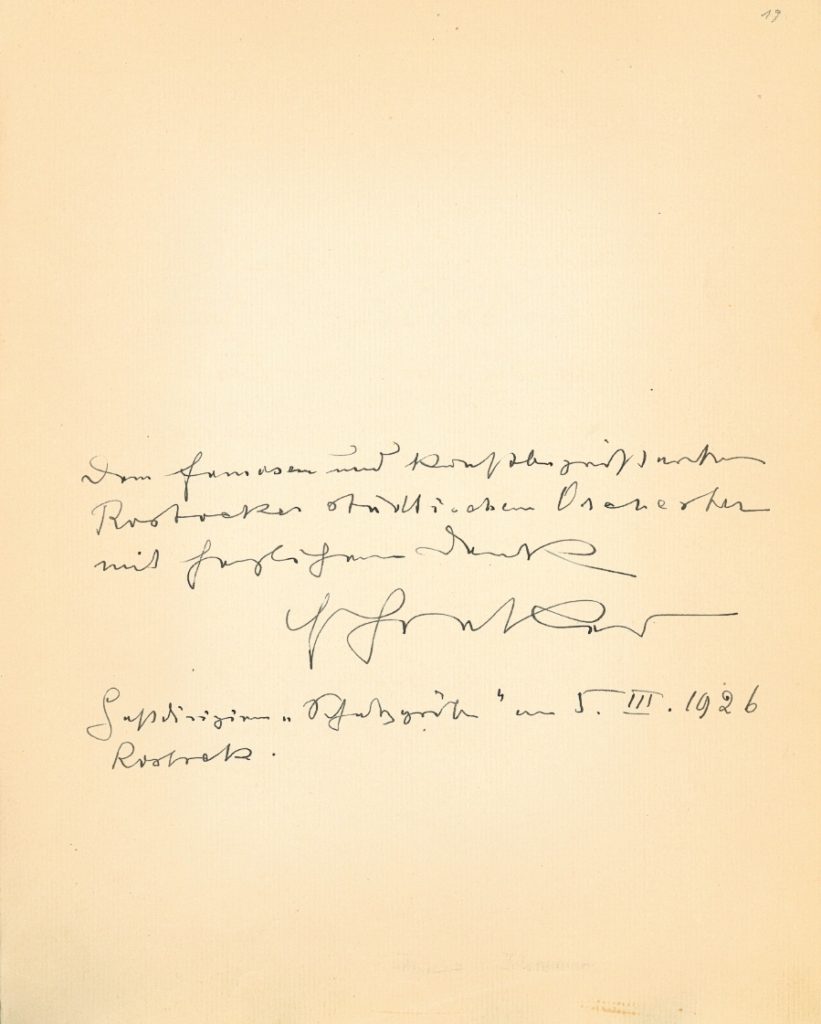 19
Dem famosen und kunstbegeisterten
Rostocker städtischen Orchester
mit herzlichem Dank
Schreker
Gastdirigieren „Schatzgräber“ am 5. III. 1926
Rostock.